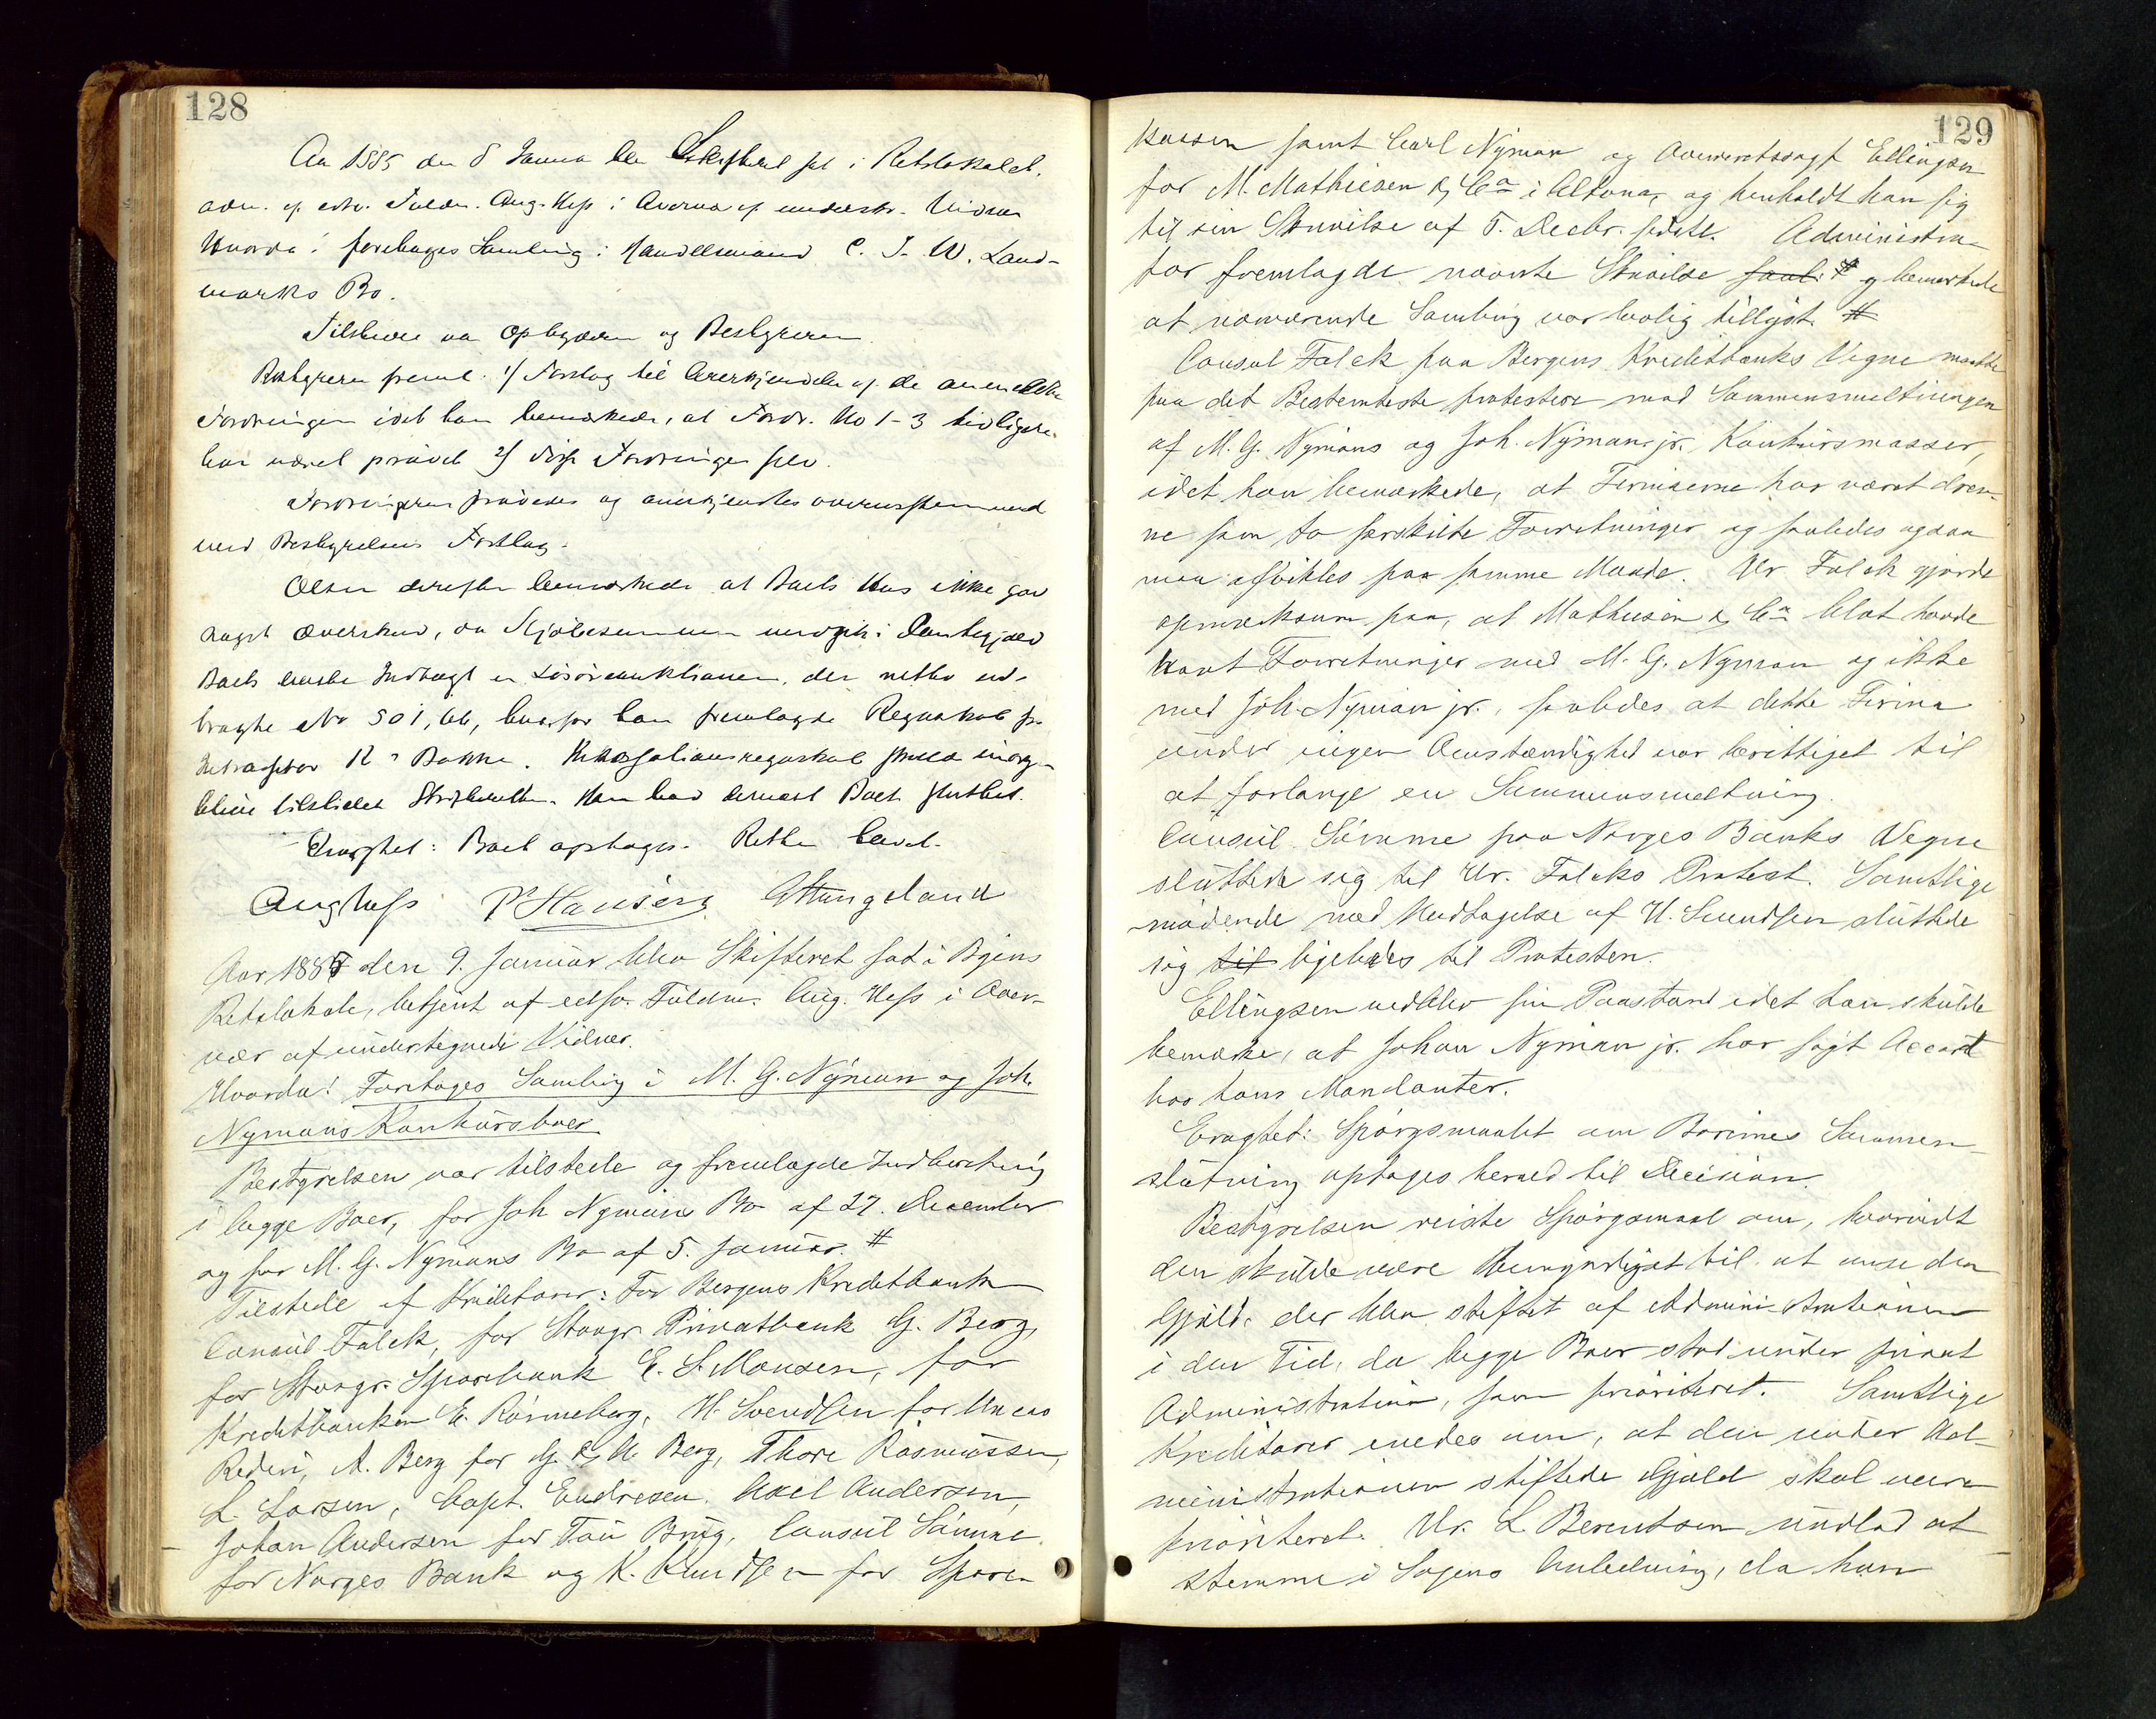 128
Aar 1885 den 8 Januar blev Skifteret sat i Retslokalet.
adm. af edsv. Fuldm. Aug. Hess i Overvær af underskr. Vidner
Hvorda! foretoges Samling i Handelsmand C. J. W. Land-
marks Bo.
Tilstede var Opbyderen og Bestyreren.
Bestyreren freml. 1/ Forslag til Anerkjendelse af de anmeldte
Fordringer idet han bemærkede, at Fordr. No 1-3 tidligere
har været prøvet 2/ disse Fordringer selv.
Fordringerne prøvedes og anerkjendtes overensstemmende
med Bestyrelsens Forslag.
Olsen derefter bemærkede at Boets Hus ikke gav
noget Overskud, da Kjøbesummen medgik i Pantegjæld
Boets eneste Indtægt er Løsøreauktionen, der netto ud-
bragte Kr 501,66, hvorfor han fremlagde Regnskab fra
Inkassator R. Bakke. Repartitionsregnskab skulde
blive tilstillet Skifteretten. Han bad dernæst Boet sluttet.
Eragtet: Boet optages. Retten hævet.
Aug Hess P Hansen G Haugeland
Aar 1885 den 9. Januar blev Skifteret sat i Byens
Retslokale, betjent af edsv. Fuldm. Aug. Hess i Over-
vær af undertegnede Vidner.
Hvorda! Foretoges Samling i M. G. Nyman og Joh.
Nymans Konkursboer
Bestyrelsen var tilstede og fremlagde Indberetning
i begge Boer, for Joh Nymans Bo af 27. December
og for M. G. Nymans Bo af 5. Januar. #
Tilstede af Kreditorer: For Bergens Kreditbank
Consul Falck, for Stvgr. Privatbank G. Berg,
for Stvgr. Sparebank E. S. Monsen, for
Kreditbanken E. Rosenberg, H. Svendsen for
Rederi, A. Berg for G. & A. Berg, Thore Rasmussen,
L. Larsen, Capt. Endresen. Axel Andersen,
Johan Andersen for Tou Brug, Consul Sömme
for Norges Bank og K. Knudsen for Spare-
129
kassen samt Carl Nyman og Overretssagf. Ellingsen
for M. Mathiesen & Co i Altona, og henholdt han sig
til sin Skrivelse af 5. Decbr. sidstl. Administra-
tor fremlagde nævnte Skrivelse samt # og bemærkede
at nærværende Samling var lovlig tillyst. #
Consul Falck paa Bergens Kreditbanks Vegne maatte
paa det Bestemteste protestere mod Sammensmeltningen
af M. G. Nymans og Joh. Nyman jr. Konkursmasser,
idet han bemærkede, at Firmaerne har været drev-
ne som to særskilte Forretninger og saaledes ogsaa
maa afvikles paa samme Maade. Hr Falck gjorde
opmærksom paa, at Mathiesen & Co blot havde
havt Forretninger med M. G. Nyman og ikke
med Joh. Nyman jr., saaledes at dette Firma
under ingen Omstændighed var berettiget til
at forlange en Sammensmeltning.
Consul Sömme paa Norges Banks Vegne
sluttede sig til Hr. Falcks Protest. Samtlige
mødende med Undtagelse af H. Svendsen sluttede
sig til ligeledes til Protesten.
Ellingsen vedblev sin Paastand idet han skulde
bemærke, at Johan Nyman jr. har søgt Accord
hos hans Mandanter.
Eragtet: Spørgsmaalet om Boernes Sammen-
slutning optages herved til Decision.
Bestyrelsen reiste Spørgsmaal om, hvorvidt
den skulde være bemyndiget til at anse den
Gjæld, der blev stiftet af Administrationen
i den Tid, da begge Boer stod under privat
Administration, som prioriteret. Samtlige
Kreditorer enedes om, at den under Ad-
ministrationen stiftede Gjæld skal være
prioriteret. Hr. L. Berentsen undlod at
stemme i Sagens Anledning, da han